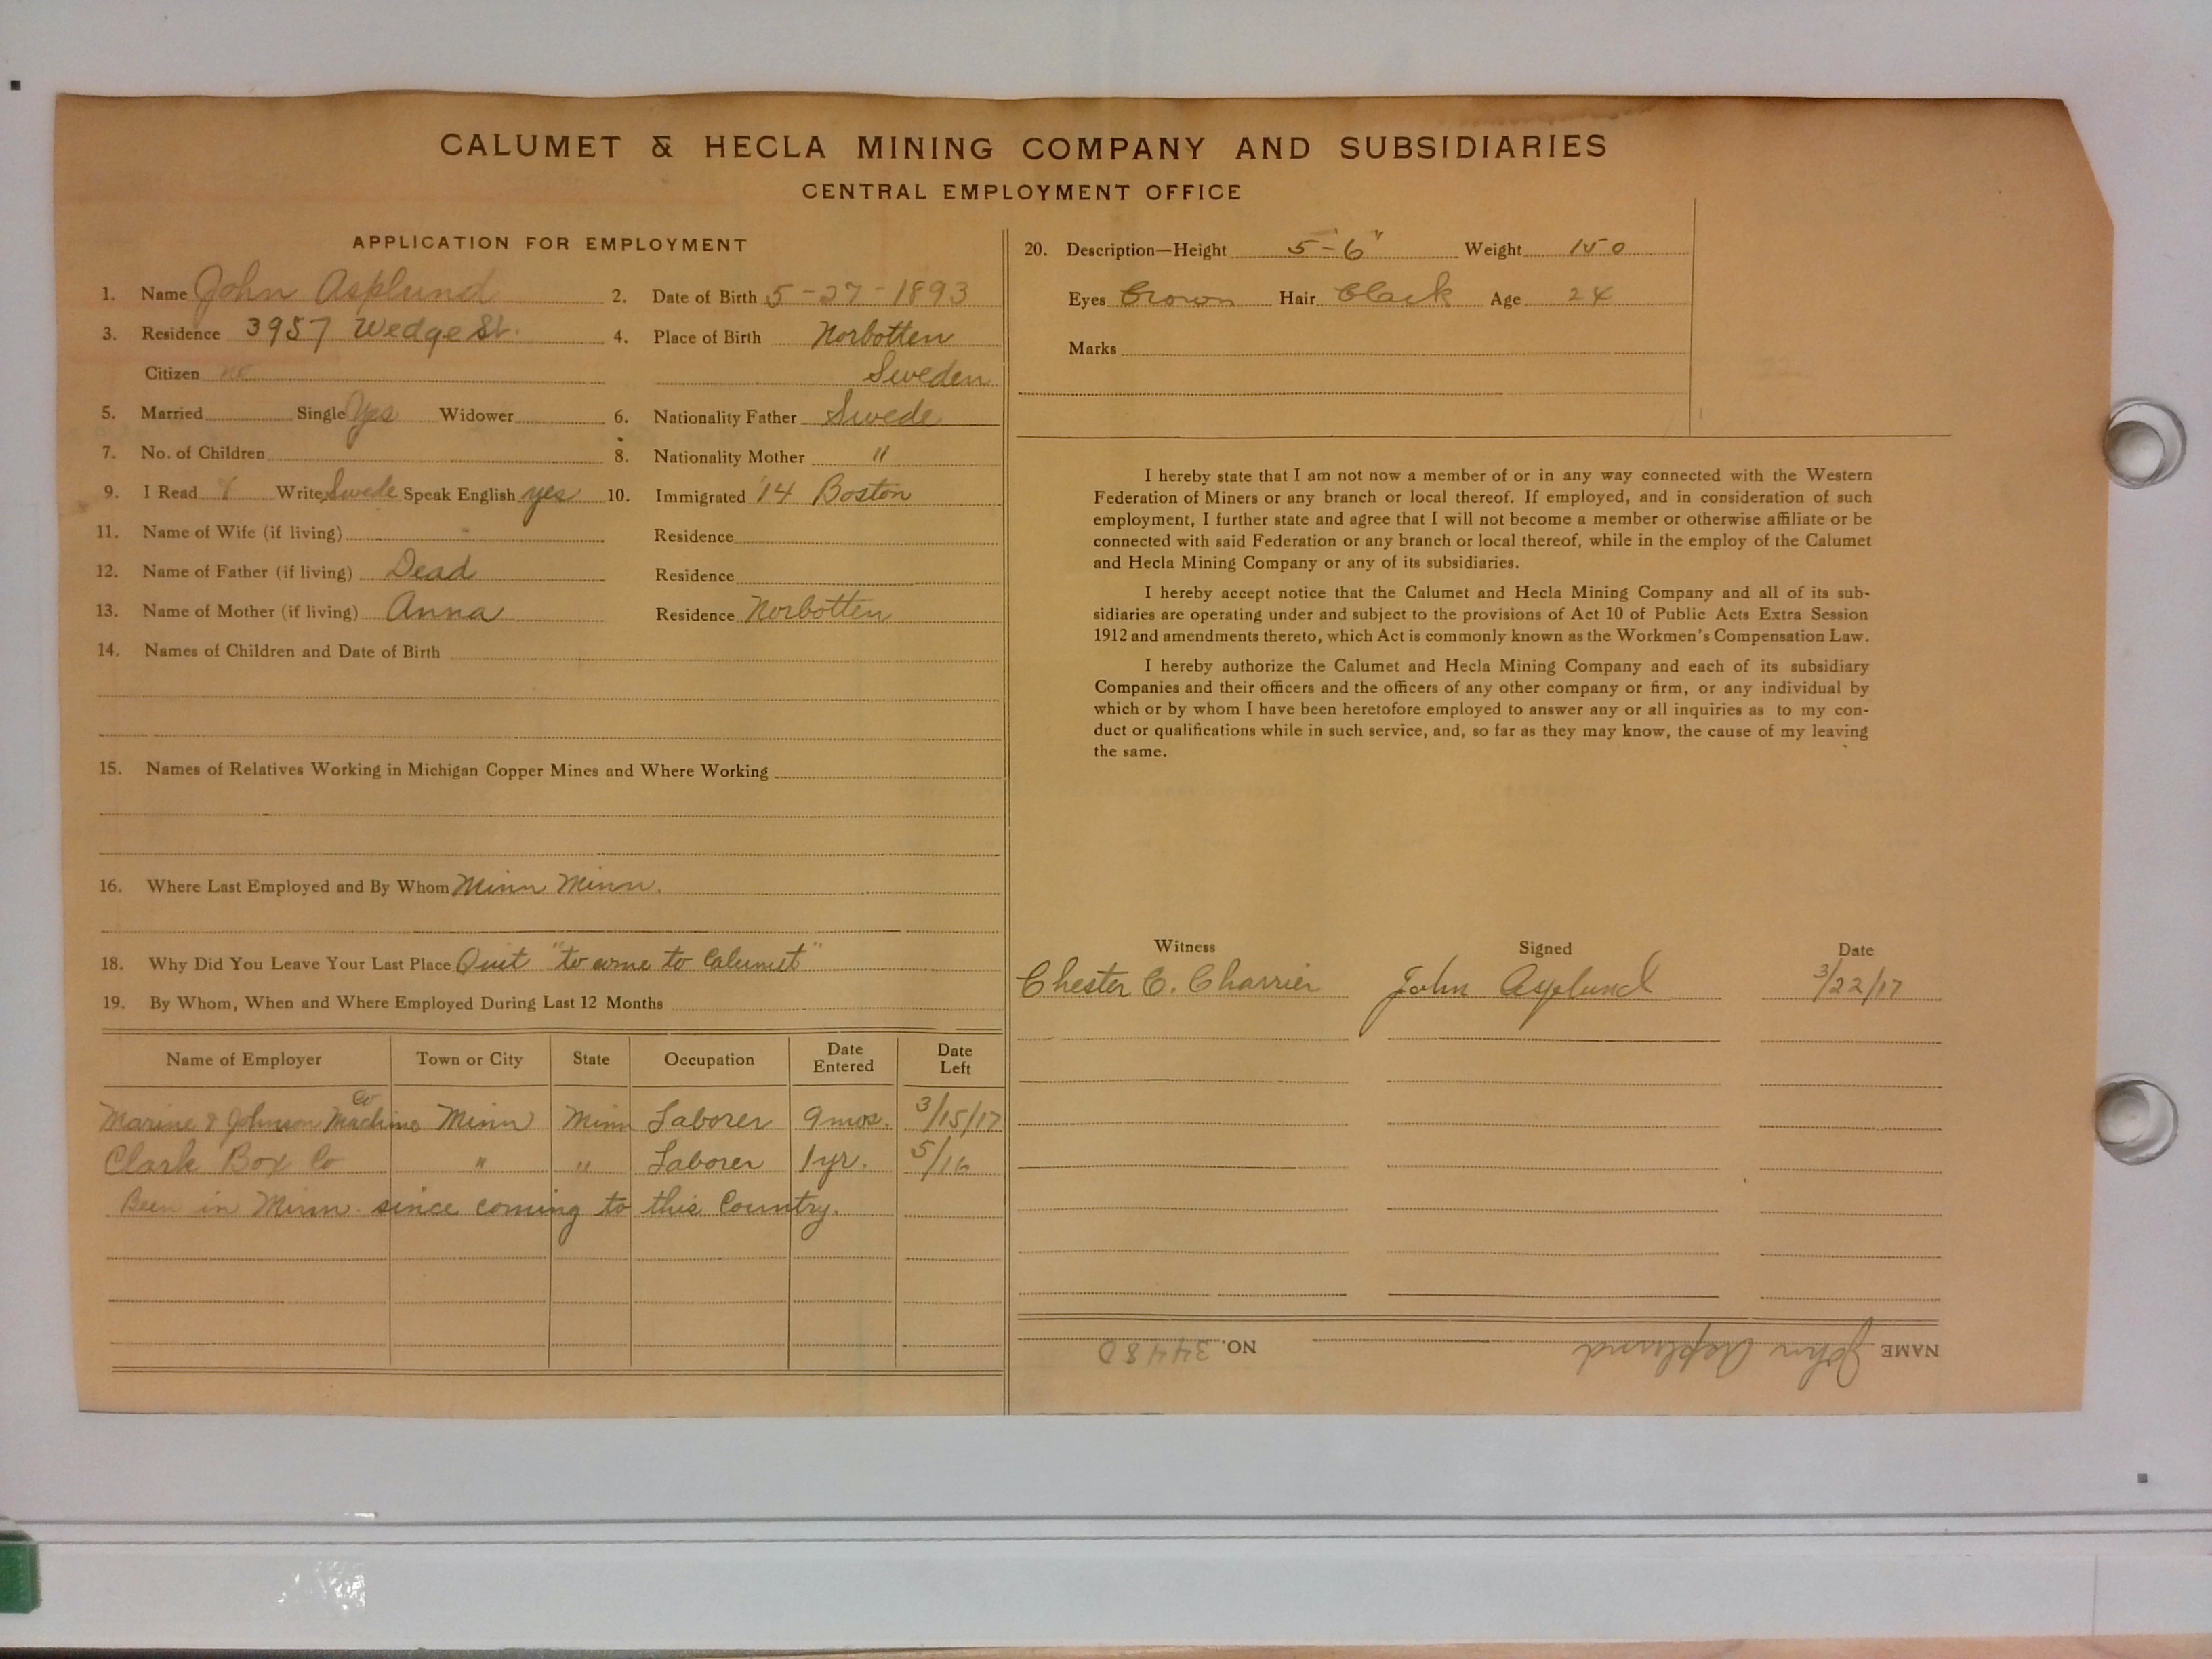 CALUMET & HECLA MINING COMPANY AND SUBSIDIARIES
CENTRAL EMPLOYMENT OFFICE
APPLICATION FOR EMPLOYMENT
1. Name John Asplund 2. Date of Birth 5-27-1893
3. Residence 3957 Wedge St. 4. Place of Birth Norbotten
Citizen no Sweden
5. Married Single Yes Widower 6. Nationality Father Swede
7. No. of Children 8. Nationality Mother "
9. I Read & Write Swede Speak English yes 10. Immigrated '14 Boston
11. Name of Wife (if living) - Residence
12. Name of Father (if living) Dead Residence
13. Name of Mother (if living) Anna Residence Norbotten
14. Names of Children and Date of Birth
15. Names of Relatives Working in Michigan Copper Mines and Where Working
16. Where Last Employed and By Whom Minn Minn.
18. Why Did You Leave Your Last Place Quit "to come to Calumet"
19. By Whom, When and Where Employed During Last 12 Months
Name of Employer Town or City State Occupation Date Entered Date Left
Marine & Johnson Machine Co Minn Minn Laborer 9 mos. 3/15/17
Clark Box Co " " Laborer 1 yr. 5/16
Been in Minn. since coming to this Country.
20. Description—Height 5-6" Weight 150
Eyes Brown Hair Black Age 24
Marks
I hereby state that I am not now a member of or in any way connected with the Western
Federation of Miners or any branch or local thereof. If employed, and in consideration of such
employment, I further state and agree that I will not become a member or otherwise affiliate or be
connected with said Federation or any branch or local thereof, while in the employ of the Calumet
and Hecla Mining Company or any of its subsidiaries.
I hereby accept notice that the Calumet and Hecla Mining Company and all of its sub-
sidiaries are operating under and subject to the provisions of Act 10 of Public Acts Extra Session
1912 and amendments thereto, which Act is commonly known as the Workmen's Compensation Law.
I hereby authorize the Calumet and Hecla Mining Company and each of its subsidiary
Companies and their officers and the officers of any other company or firm, or any individual by
which or by whom I have been heretofore employed to answer any or all inquiries as to my con-
duct or qualifications while in such service, and, so far as they may know, the cause of my leaving
the same.
Witness Signed Date
Chester C. Charrier John Asplund 3/22/17
NAME John Asplund NO. 34480